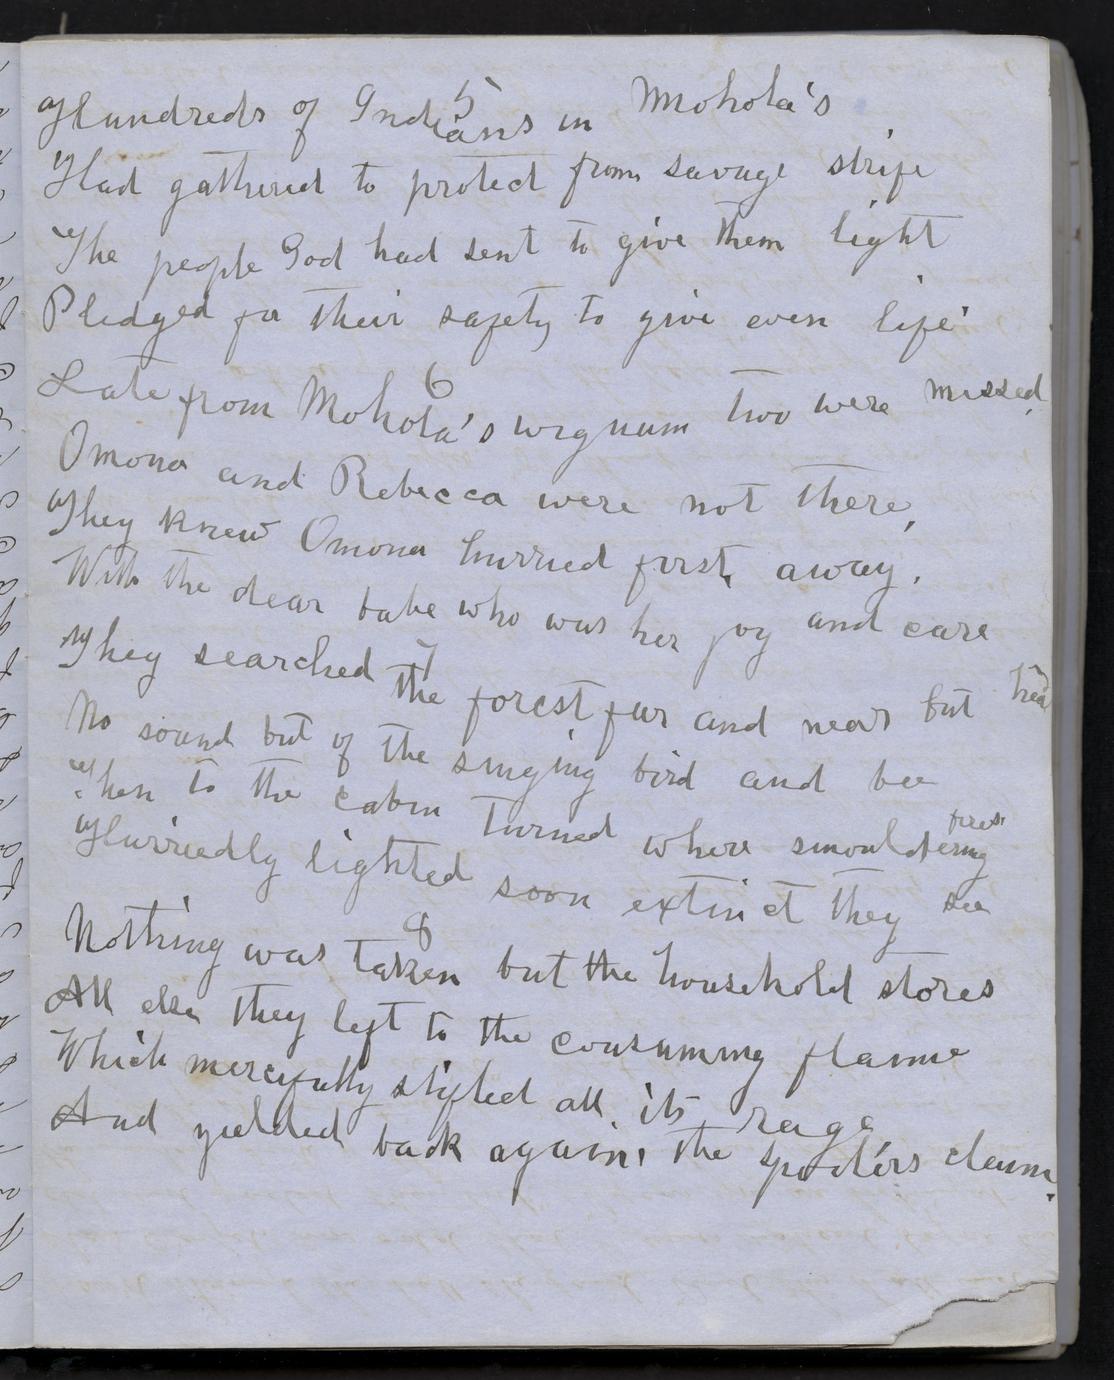 5
Hundreds of Indians in Mohola's
Had gathered to protect from savage strife
The people God had sent to give them light
Pledged for their safety to give even life
6
Late from Mohola's wigwam two were missed,
Omona and Rebecca were not there,
They knew Omona hurried first, away,
With the dear babe who was her joy and care
7
They searched the forest far and near but hear
No sound but of the singing bird and bee
Then to the cabin turned where smouldering fires
Hurriedly lighted soon extinct they see
8
Nothing was taken but the household stores
All else they left to the consuming flame
Which mercifully stifled all its rage
And yielded back again, the spoiler's claim.